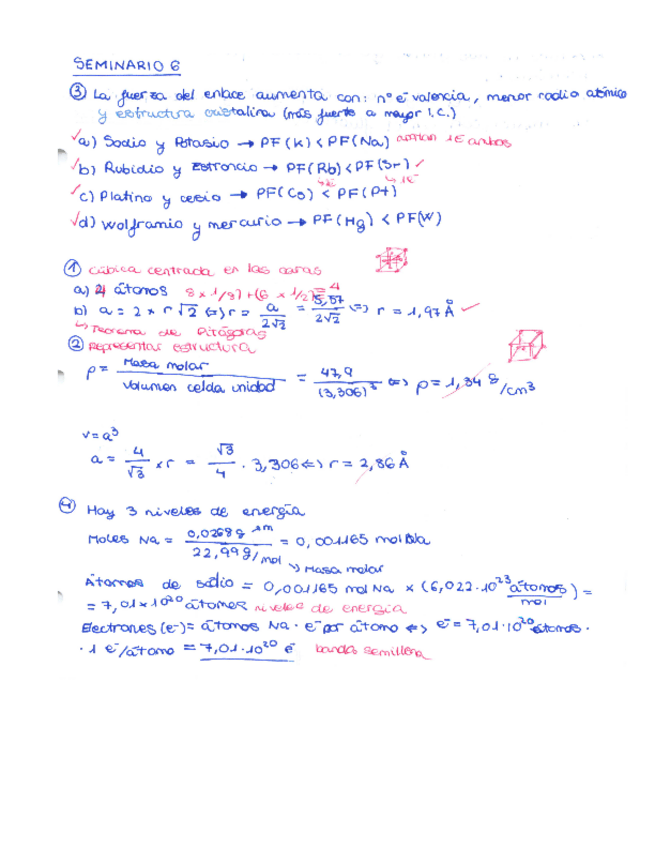 SEMINARIO 6
③ La fuerza del enlace aumenta con: nº e⁻ valencia, menor radio atómico
y estructura cristalina (más fuerte a mayor I.C.)
a) Sodio y Potasio → PF(K) < PF(Na) 1e⁻ ambos
b) Rubidio y Estroncio → PF(Rb) < PF(Sr) ✓
c) Platino y cesio → PF(Cs) < PF(Pt)
d) Wolframio y mercurio → PF(Hg) < PF(W)
① Cúbica centrada en las caras
a) 4 átomos 8 x 1/8) + (6 x 1/2) = 4
b) a = 2 * r √2 ⇔ r = a / 2√2 = 5,57 / 2√2 ⇔ r = 1,97 Å ✓
↳ Teorema de Pitágoras
② Representar estructura
ρ = Masa molar / Volumen celda unidad = 47,9 / (3,306)³ ⇔ ρ = 1,34 g/cm3
v = a³
a = 4/√3 x r = √3/4 · 3,306 ⇔ r = 2,86 Å
④ Hay 3 niveles de energía
Moles Na = 0,0268 g / 22,99 g/mol = 0,001165 mol Na
↳ Masa molar
Átomos de sodio = 0,001165 mol Na x (6,022·10²³ átomos/mol) =
= 7,01x10²⁰ átomos niveles de energía
Electrones (e⁻) = átomos Na · e⁻ por átomo ⇔ e⁻ = 7,01·10²⁰ átomos ·
· 1 e⁻/átomo = 7,01·10²⁰ e⁻ banda semillena